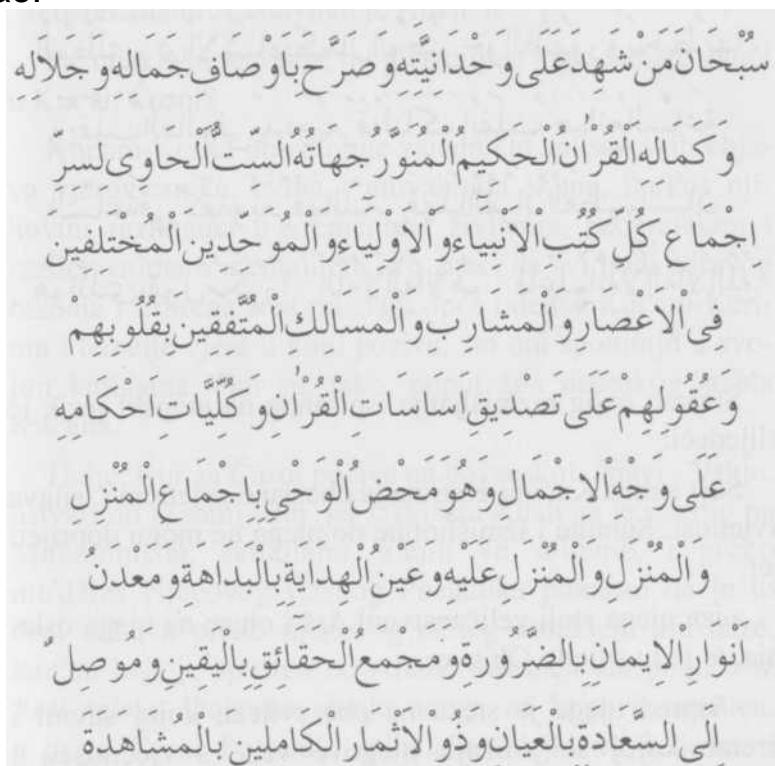 سُبْحَانَ مَنْ شَهِدَ عَلَى وَحْدَانِيَّتِهِ وَصَرَّحَ بِاَوْصَافِ جَمَالِهِ وَ جَلَالِهِ
وَ كَمَالِهِ الْقُرْاٰنُ الْحَكِيمُ الْمُنَوَّرُ جِهَاتُهُ السِّتُّ الْحَاوِى لِسِرِّ
اِجْمَاعِ كُلِّ كُتُبِ الْاَنْبِيَاءِ وَ الْاَوْلِيَاءِ وَ الْمُوَحِّدِينَ الْمُخْتَلِفِينَ
فِى الْاَعْصَارِ وَ الْمَشَارِبِ وَ الْمَسَالِكِ الْمُتَّفِقِينَ بِقُلُوبِهِمْ
وَ عُقُولِهِمْ عَلَى تَصْدِيقِ اَسَاسَاتِ الْقُرْاٰنِ وَ كُلِّيَّاتِ اَحْكَامِهِ
عَلَى وَجْهِ الْاِجْمَالِ وَ هُوَ مَحْضُ الْوَحْىِ بِاِجْمَاعِ الْمُنْزِلِ
وَ الْمُنْزَلِ وَ الْمُنْزَلِ عَلَيْهِ وَ عَيْنُ الْهِدَايَةِ بِالْبَدَاهَةِ وَ مَعْدَنُ
اَنْوَارِ الْاِيمَانِ بِالضَّرُورَةِ وَ مَجْمَعُ الْحَقَائِقِ بِالْيَقِينِ وَ مُوصِلٌ
اِلَى السَّعَادَةِ بِالْعِيَانِ وَ ذُو الْاَثْمَارِ الْكَامِلِينَ بِالْمُشَاهَدَةِ